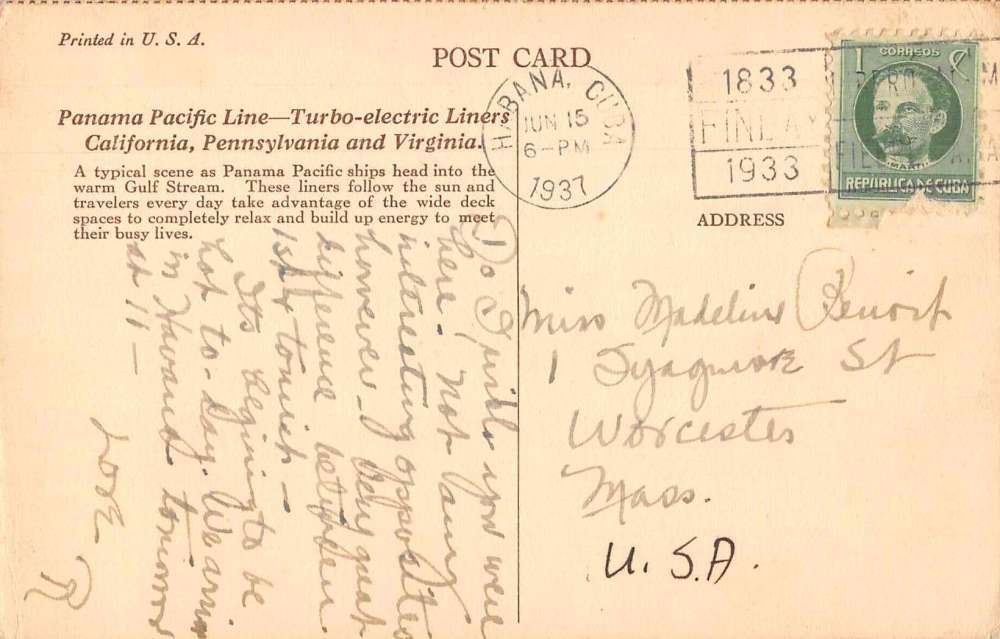 Printed in U. S. A.
POST CARD
Panama Pacific Line—Turbo-electric Liners
California, Pennsylvania and Virginia.
A typical scene as Panama Pacific ships head into the
warm Gulf Stream. These liners follow the sun and
travelers every day take advantage of the wide deck
spaces to completely relax and build up energy to meet
their busy lives.
HABANA, CUBA
JUN 15
6-PM
1937
1833
FINLAY
1933
CORREOS
1 ¢
MARTI
REPUBLICA DE CUBA
ADDRESS
Miss Madeline Benoit
1 St
Worcester
Mass.
U.S.A.
Do I wish you were
here. Not many
interesting opposites
however - Very great
difference between
1st & tourist -
Its begining to be
hot to-day. We arrive
in Havana tomorrow
at 11 -
Love
R